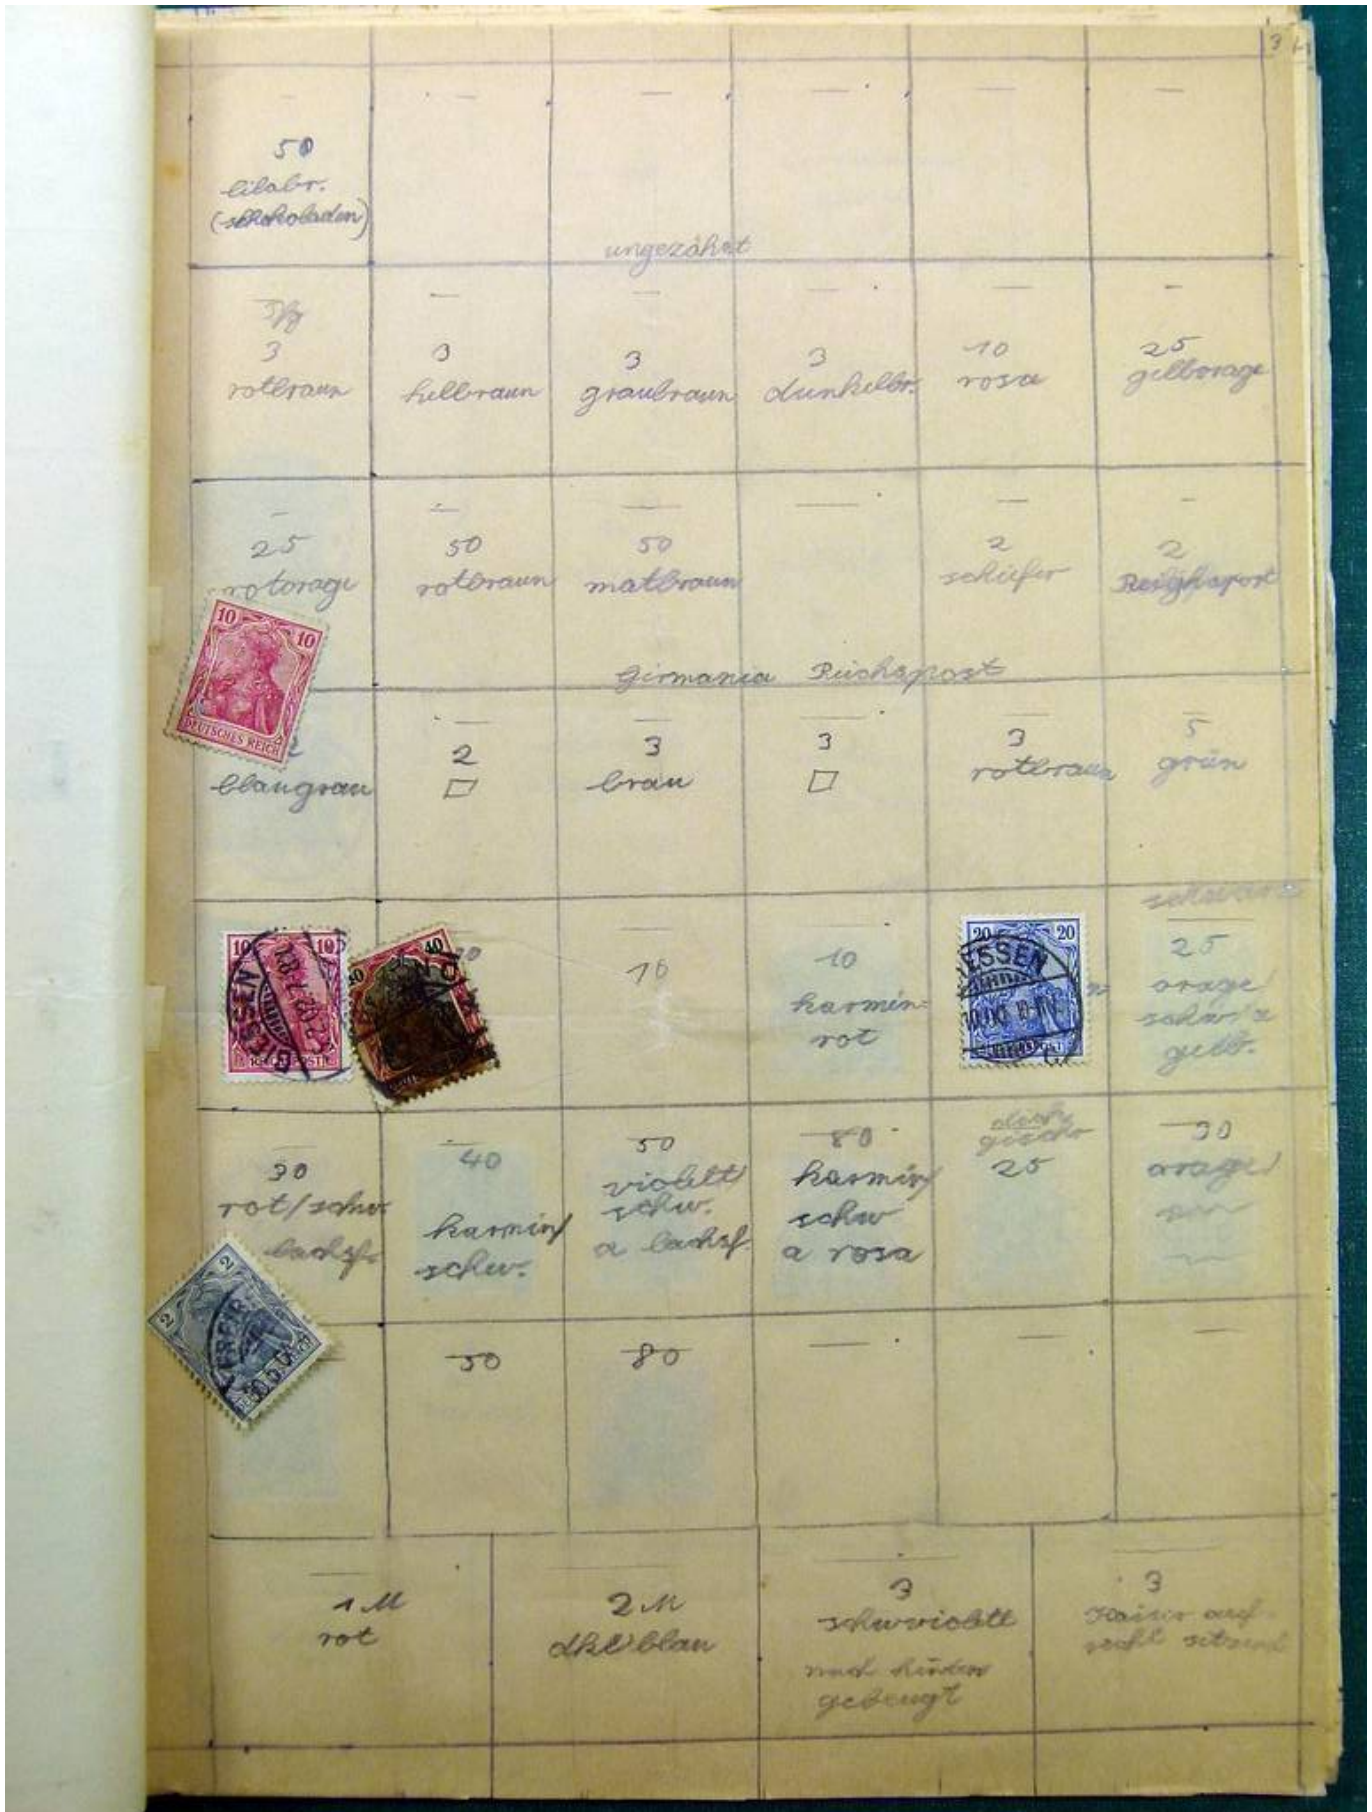 3
50
lilabr.
(schokoladen)
ungezähnt
3
rotbraun
3
hellbraun
3
graubraun
3
dunkelbr.
10
rosa
25
gelborage
25
rotorage
50
rotbraun
50
matbraun
2
schiefer
2
10 10
DEUTSCHES REICH
Germania Reichspost
blaugrau
2
3
brau
3
3
rotbraun
5
grün
10 10
GIESSEN
40
10
10
karmin=
rot
20 20
ESSEN
25
orage/
gelb.
30
rot/schw.
lachsf.
40
karmin/
schw.
50
violett/
schw.
a lachsf.
80
karmin/
schw
a rosa
25
30
orage/
2 2
50
80
1 M
rot
2 M
dkl blau
3
schwviolett
nach hinten
gebeugt
3
Kaiser auf-
recht sitzend